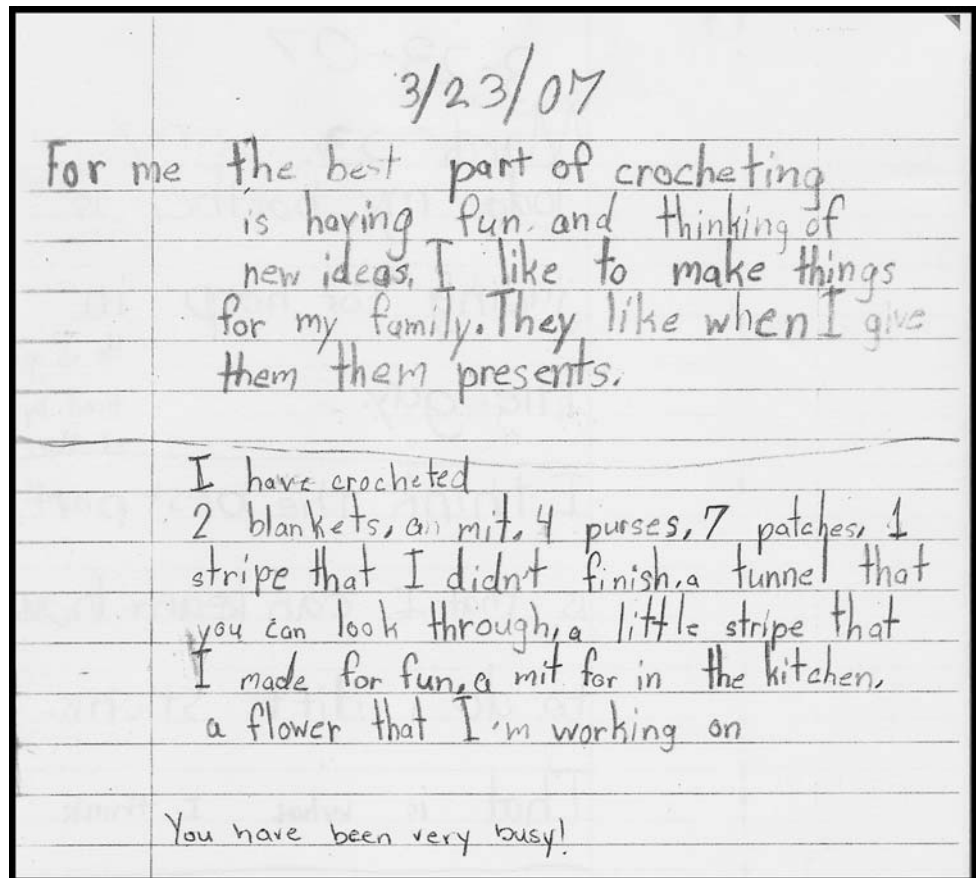 3/23/07
For me the best part of crocheting
is having fun and thinking of
new ideas. I like to make things
for my family. They like when I give
them them presents.
I have crocheted
2 blankets, an mit, 4 purses, 7 patches, 1
stripe that I didn't finish, a tunnel that
you can look through, a little stripe that
I made for fun, a mit for in the kitchen,
a flower that I'm working on
You have been very busy!